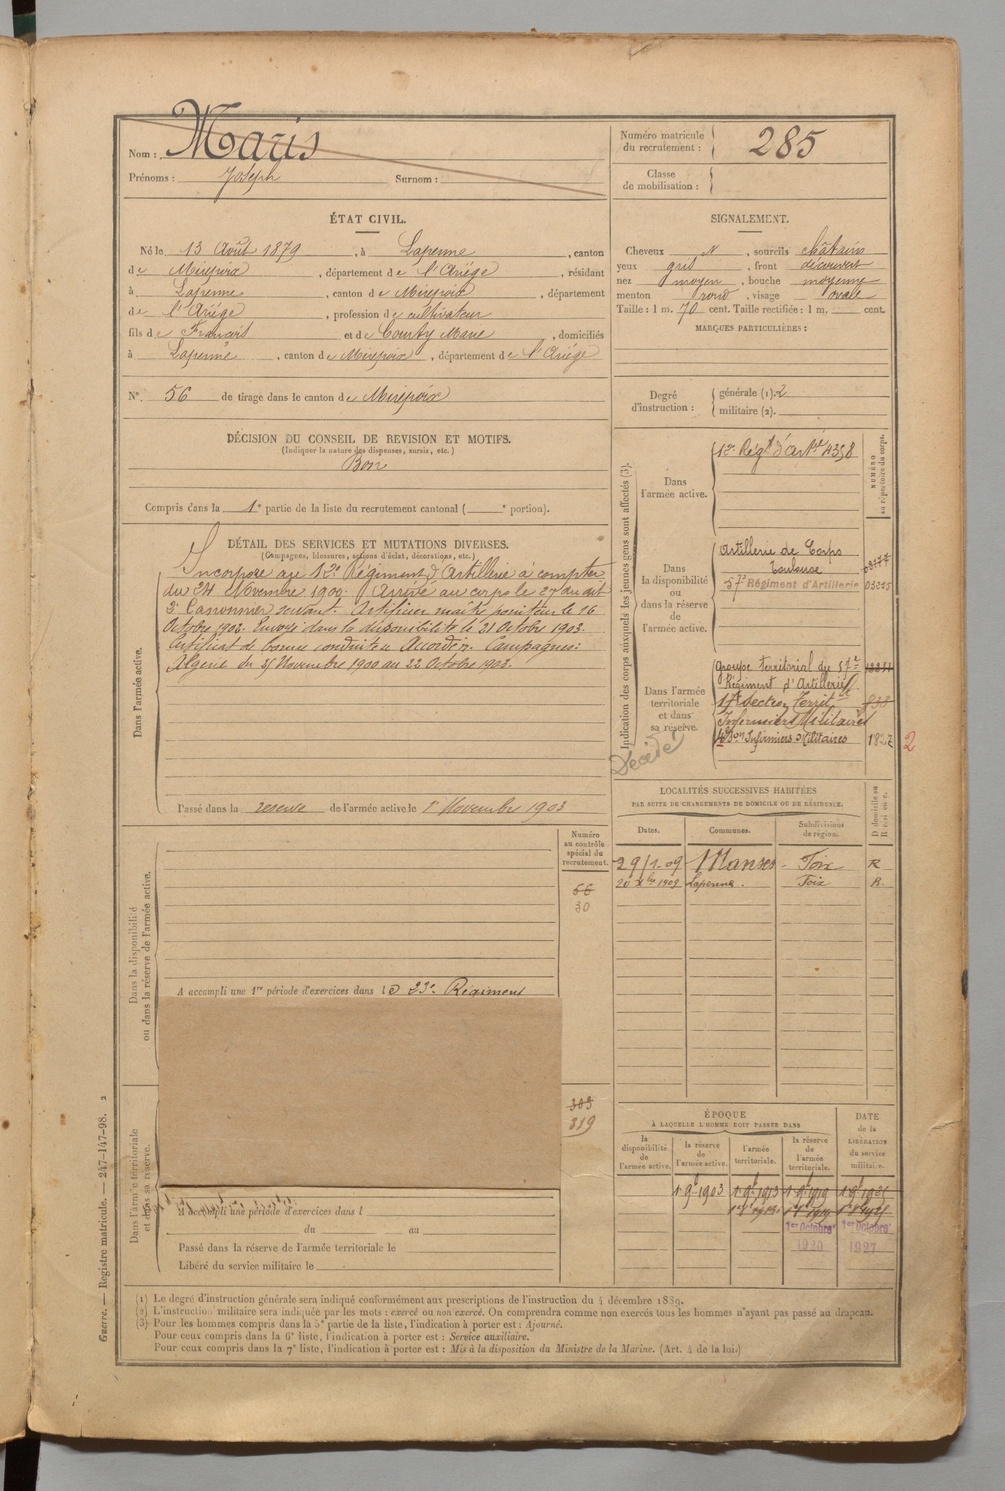 Nom : Maris
Prénoms : Joseph Surnom :
Numéro matricule du recrutement : 285
Classe de mobilisation :
ÉTAT CIVIL.
Né le 13 Août 1879, à Lapenne, canton
de Mirepoix, département de l'Ariége, résidant
à Lapenne, canton de Mirepoix, département
de l'Ariége, profession de cultivateur
fils de François et de Courty Marie, domiciliés
à Lapenne, canton de Mirepoix, département de l'Ariége
N°. 56 de tirage dans le canton de Mirepoix
SIGNALEMENT.
Cheveux N, sourcils châtains
yeux gris, front découvert
nez moyen, bouche moyenne
menton rond, visage ovale
Taille : 1 m. 70 cent. Taille rectifiée : 1 m. cent.
MARQUES PARTICULIÈRES :
Degré d'instruction : générale (1). 2
militaire (2).
DÉCISION DU CONSEIL DE REVISION ET MOTIFS.
(Indiquer la nature des dispenses, sursis, etc.)
Bon
Compris dans la 1e partie de la liste du recrutement cantonal ( e portion).
DÉTAIL DES SERVICES ET MUTATIONS DIVERSES.
(Campagnes, blessures, actions d'éclat, décorations, etc.)
Dans l'armée active.
Incorporé au 12e Régiment d'Artillerie à compter
du 24 Novembre 1900. Arrivé au corps le 27 du dit
2e Canonnier servant. Artificier maître pointeur le 16
Octobre 1902. Envoyé dans la disponibilité le 31 Octobre 1903.
Certificat de bonne conduite Accordé. Campagnes:
Algérie du 25 Novembre 1900 au 22 Octobre 1903.
Passé dans la reserve de l'armée active le 1er Novembre 1903
Indication des corps auxquels les jeunes gens sont affectés (3).
NUMÉRO au répertoire du corps.
Dans l'armée active.
12e Régt d'Artie 4358
Dans la disponibilité ou dans la réserve de l'armée active.
Artillerie de Corps
Toulouse
57e Régiment d'Artillerie 03245
Dans l'armée territoriale et dans sa réserve.
Groupe territorial du 57e
Régiment d'Artillerie
17e Section Territ.
Infirmiers Militaires
Infirmiers Militaires 1827 2
Décédé
LOCALITÉS SUCCESSIVES HABITÉES
PAR SUITE DE CHANGEMENTS DE DOMICILE OU DE RÉSIDENCE.
Dates. Communes. Subdivisions de région. D domicile ou R résidence.
29/1-09 Manses - Foix R
20 Xbre 1909 Lapenne. Foix R.
Dans la disponibilité ou dans la réserve de l'armée active.
Numéro au contrôle spécial du recrutement.
66
30
A accompli une 1re période d'exercices dans le 23e Régiment
Dans l'armée territoriale et dans sa réserve.
303
319
période d'exercices dans l
du au
Passé dans la réserve de l'armée territoriale le
Libéré du service militaire le
ÉPOQUE
À LAQUELLE L'HOMME DOIT PASSER DANS
DATE de la LIBÉRATION du service militaire.
la disponibilité de l'armée active. la réserve de l'armée active. l'armée territoriale. la réserve de l'armée territoriale.
1 9bre 1903 1 9bre 1913 1 9bre 1919
1er Octobre 1920 1er Octobre 1927
(1) Le degré d'instruction générale sera indiqué conformément aux prescriptions de l'instruction du 4 décembre 1889.
(2) L'instruction militaire sera indiquée par les mots : exercé ou non exercé. On comprendra comme non exercés tous les hommes n'ayant pas passé au drapeau.
(3) Pour les hommes compris dans la 5e partie de la liste, l'indication à porter est : Ajourné.
Pour ceux compris dans la 6e liste, l'indication à porter est : Service auxiliaire.
Pour ceux compris dans la 7e liste, l'indication à porter est : Mis à la disposition du Ministre de la Marine. (Art. 4 de la loi)
Guerre. — Registre matricule. — 247-147-98. 2